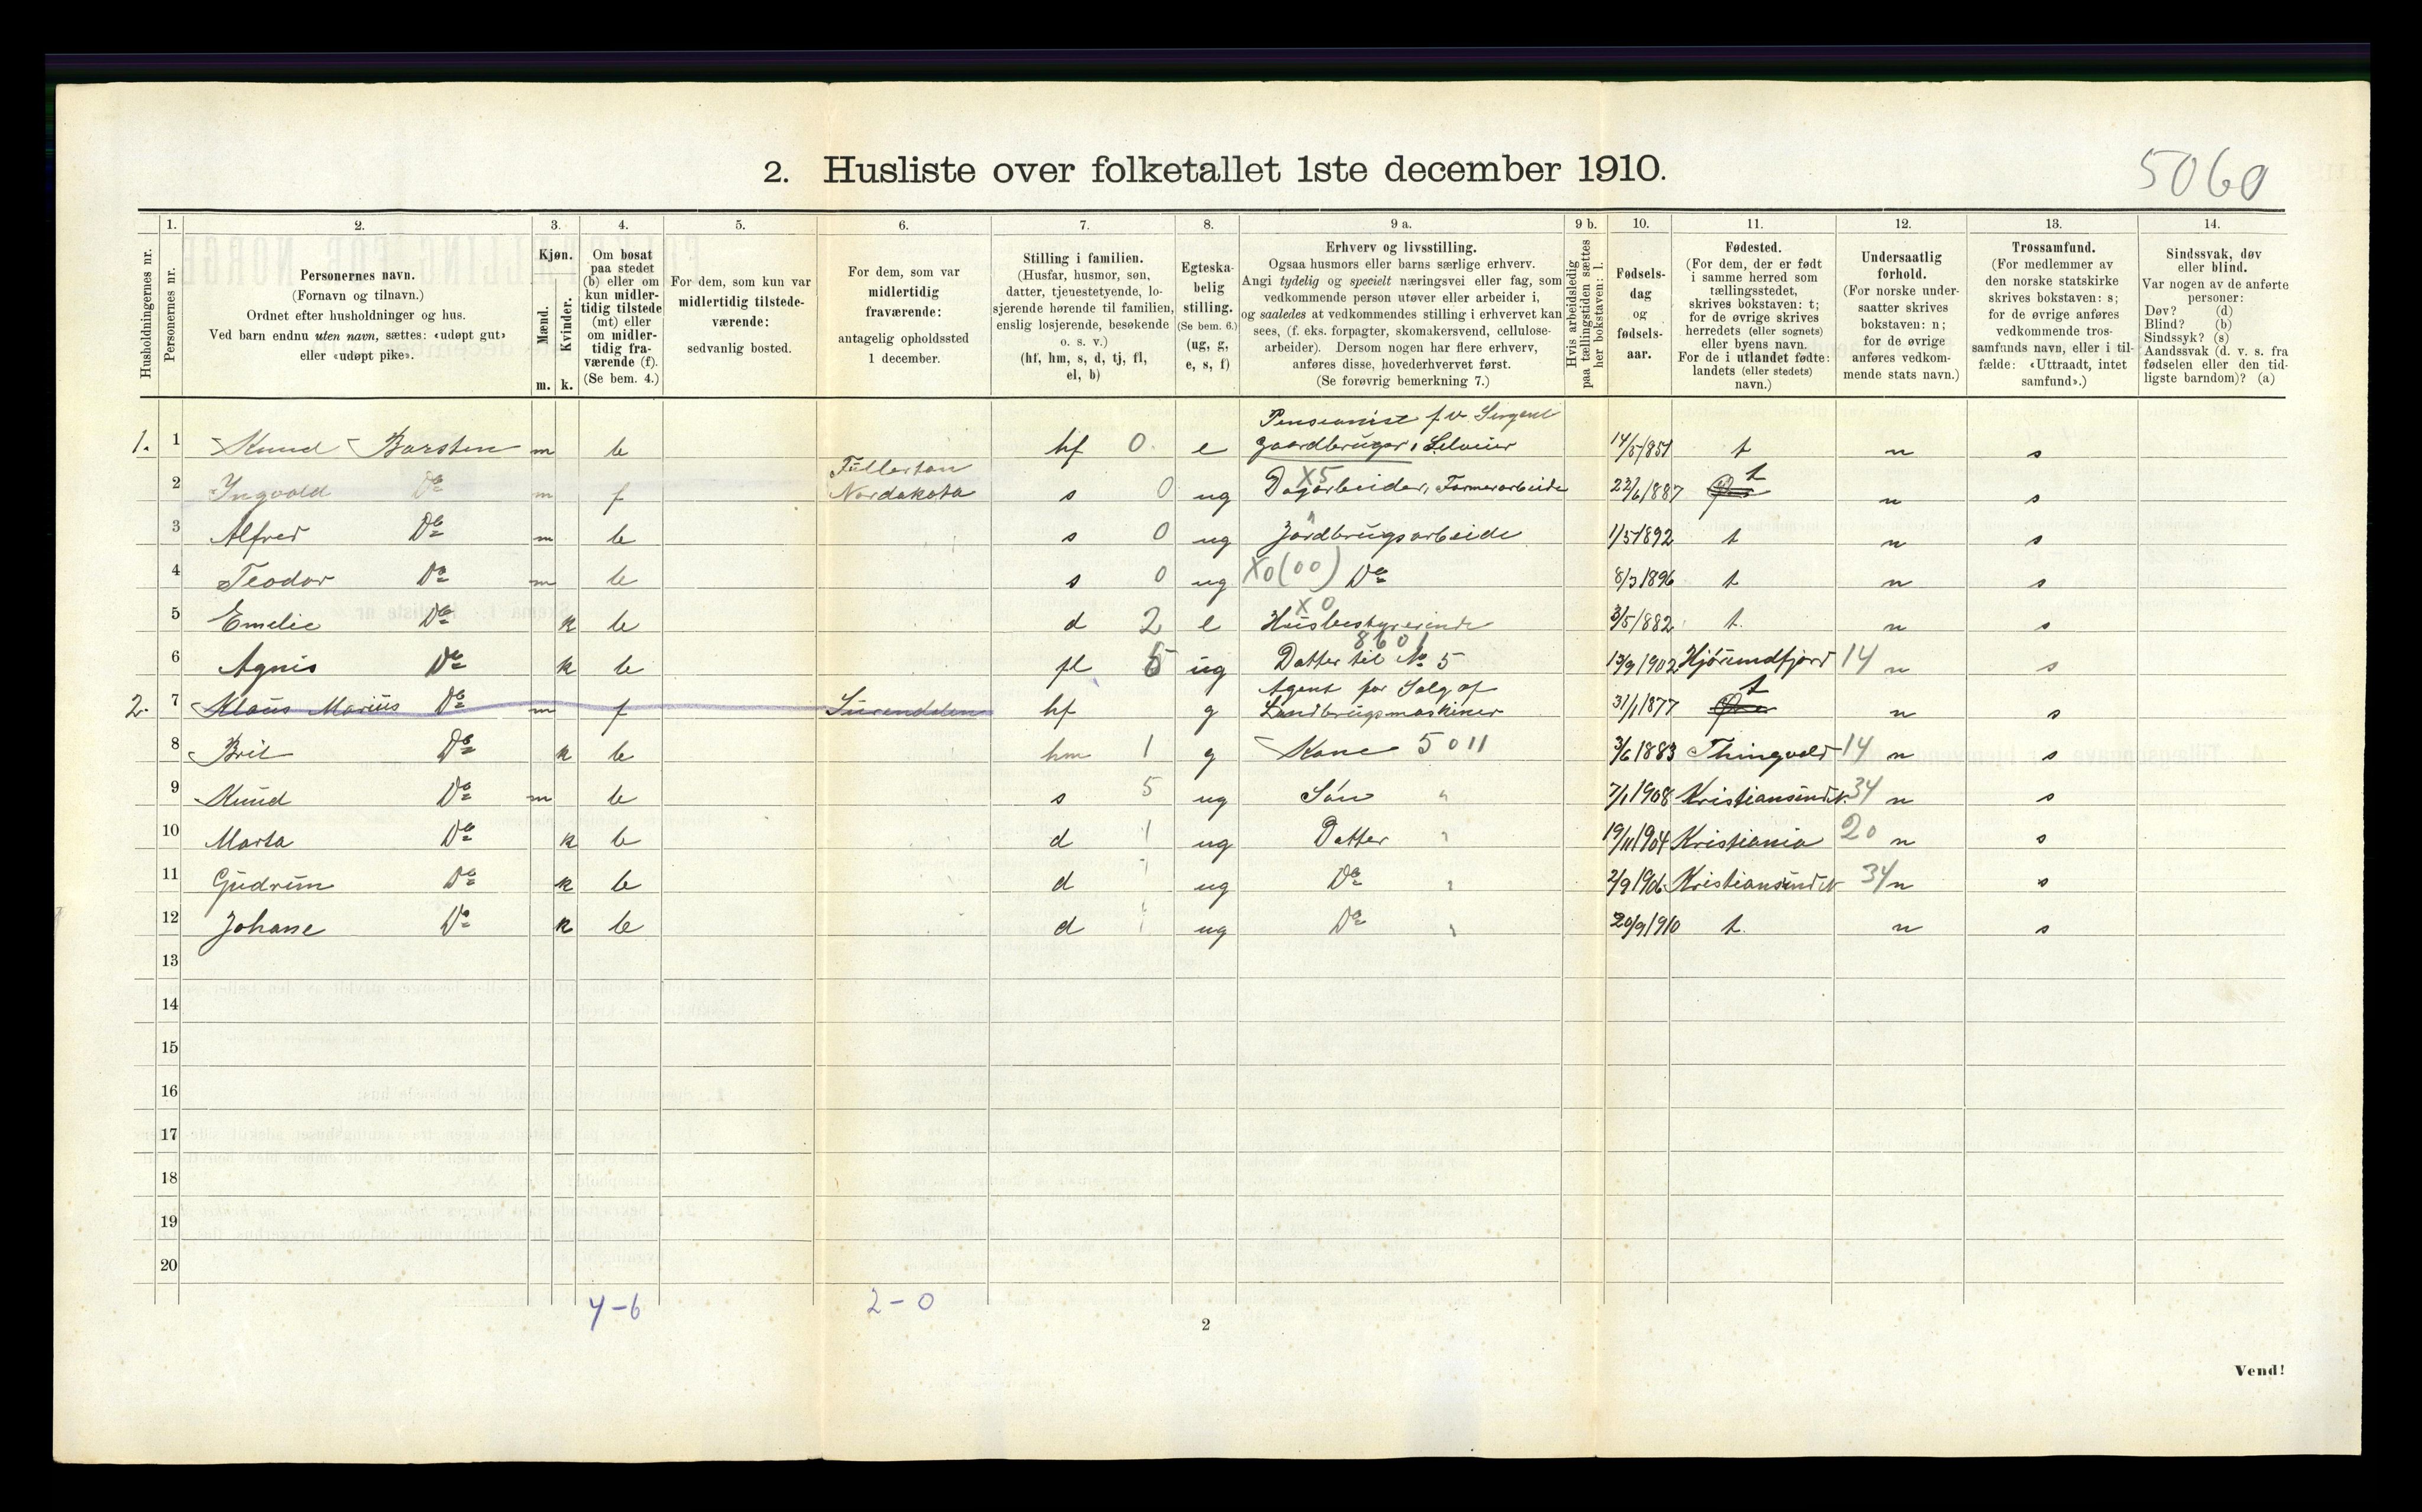 2. Husliste over folketallet 1ste december 1910.
5060
Husholdningernes nr.
1.
Personernes nr.
2.
Personernes navn.
(Fornavn og tilnavn.)
Ordnet efter husholdninger og hus.
Ved barn endnu uten navn, sættes: «udøpt gut»
eller «udøpt pike».
3.
Kjøn.
Mænd.
Kvinder.
m. k.
4.
Om bosat
paa stedet
(b) eller om
kun midler-
tidig tilstede
(mt) eller
om midler-
tidig fra-
værende (f).
(Se bem. 4.)
5.
For dem, som kun var
midlertidig tilstede-
værende:
sedvanlig bosted.
6.
For dem, som var
midlertidig
fraværende:
antagelig opholdssted
1 december.
7.
Stilling i familien.
(Husfar, husmor, søn,
datter, tjenestetyende, lo-
sjerende hørende til familien,
enslig losjerende, besøkende
o. s. v.)
(hf, hm, s, d, tj, fl,
el, b)
8.
Egteska-
belig
stilling.
(Se bem. 6.)
(ug, g,
e, s, f)
9 a.
Erhverv og livsstilling.
Ogsaa husmors eller barns særlige erhverv.
Angi tydelig og specielt næringsvei eller fag, som
vedkommende person utøver eller arbeider i,
og saaledes at vedkommendes stilling i erhvervet kan
sees, (f. eks. forpagter, skomakersvend, cellulose-
arbeider). Dersom nogen har flere erhverv,
anføres disse, hovederhvervet først.
(Se forøvrig bemerkning 7.)
9 b.
Hvis arbeidsledig
paa tællingstiden sættes
her bokstaven: l.
10.
Fødsels-
dag
og
fødsels-
aar.
11.
Fødested.
(For dem, der er født
i samme herred som
tællingsstedet,
skrives bokstaven: t;
for de øvrige skrives
herredets (eller sognets)
eller byens navn.
For de i utlandet fødte:
landets (eller stedets)
navn.)
12.
Undersaatlig
forhold.
(For norske under-
saatter skrives
bokstaven: n;
for de øvrige
anføres vedkom-
mende stats navn.)
13.
Trossamfund.
(For medlemmer av
den norske statskirke
skrives bokstaven: s;
for de øvrige anføres
vedkommende tros-
samfunds navn, eller i til-
fælde: «Uttraadt, intet
samfund».)
14.
Sindssvak, døv
eller blind.
Var nogen av de anførte
personer:
Døv? (d)
Blind? (b)
Sindssyk? (s)
Aandssvak (d. v. s. fra
fødselen eller den tid-
ligste barndom)? (a)
Pensionist f v Sergent
1. 1 Knud Barsten m b hf 0. e gaardbruger, Selveier 14/5/1851 t n s
Fullerton
2 Ingvald Do m f Nordakota s 0 ug Dagarbeider, Farmerarbeide X5 22/6/1887 t n s
3 Alfred Do m b s 0 ug Jordbrugsarbeide 1/5/1892 t n s
4 Teodor Do m b s 0 ug X0(00) Do 8/3 1896 t n s
5 Emelie Do k b d 2 e Husbestyrerinde X0 3/5/1882 t. n s
8601
6 Agnis Do k b fl 5 ug Datter til No 5 13/9 1902 Hjørundfjord 14 n s
Agent for Salg af
2. 7 Klaus Marius Do m f Surendalen hf g Landbrugsmaskiner 31/1 1877 t n s
8 Brit Do k b hm 1 g Kone 5011 3/6 1883 Thingvold 14 n s
9 Knud Do m b s 5 ug Søn " 7/1 1908 Kristiansund N. 34 n s
10 Marta Do k b d 1 ug Datter " 19/11 1904 Kristiania 20 n s
11 Gudrun Do k b d 1 ug Do " 2/9 1906 Kristiansund N 34 n s
12 Johane Do k b d 1 ug Do " 20/9 1910 t. n s
13
14
15
16
17
18
19
20
4-6 2-0
2
Vend!